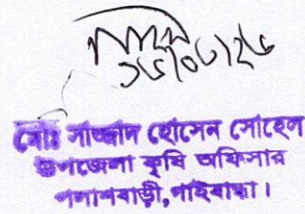 মোঃ সাজ্জাদ হোসেন সোহেল
উপজেলা কৃষি অফিসার
পলাশবাড়ী, গাইবান্ধা।